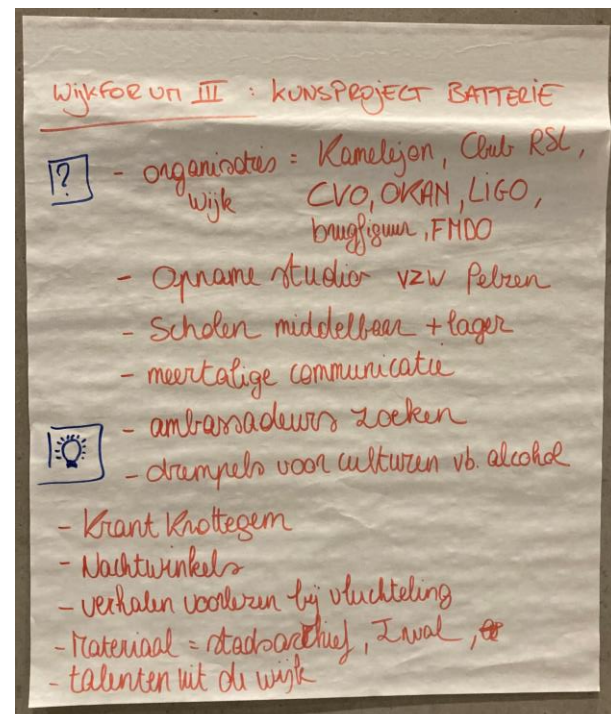 WijkFORUM III : KUNSPROJECT BATTERIE
? - organisaties = Kamelejon, Club RSL,
wijk CVO, OKAN, LIGO,
brugfiguur, FMDO
- Opname studio vzw Pelzen
- Scholen middelbaar + lager
- meertalige communicatie
- ambassadeurs zoeken
- drempels voor culturen vb. alcohol
- Krant Krottegem
- Nachtwinkels
- verhalen voorlezen bij vluchteling
- Materiaal = stadsarchief,
- talenten uit de wijk